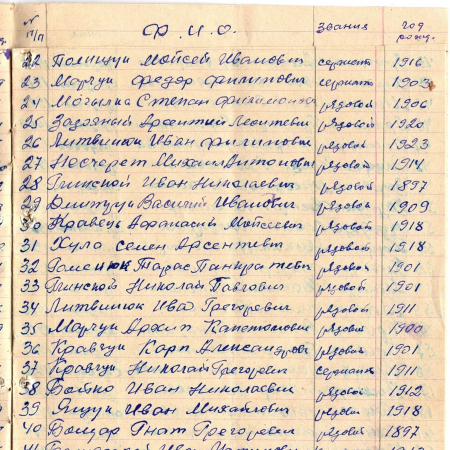 № п/п Ф. И. О. Звания год рожд.
22 Полищук Мойсей Иванович сержант 1916
23 Марчук Федор Филипович сержант 1903
24 Могилка Степан Филимонович рядовой 1906
25 Арсентий Леонтевич рядовой 1920
26 Литвинюк Иван Филипович рядовой 1923
27 Нечерет Михаил Антонович рядовой 1914
28 Пинской Иван Николаевич рядовой 1897
29 Дмитрук Василий Иванович рядовой 1909
30 Кравець Афанасий Мойсеевич рядовой 1918
31 Хула Семен Арсентевич рядовой 1918
32 Гоменюк Тарас Панкратевич рядовой 1901
33 Пинской Николай Павлович рядовой 1901
34 Литвинюк Иван Грегоревич рядовой 1911
35 Марчук Архип Капетонович рядовой 1900
36 Кравчук Карп Александрович рядовой 1901
37 Кравчук Николай Грегоревич сержант 1911
38 Бойко Иван Николаевич рядовой 1912
39 Ящук Иван Михайлович рядовой 1918
40 Бондар Гнат Грегоревич рядовой 1897
41 Иван